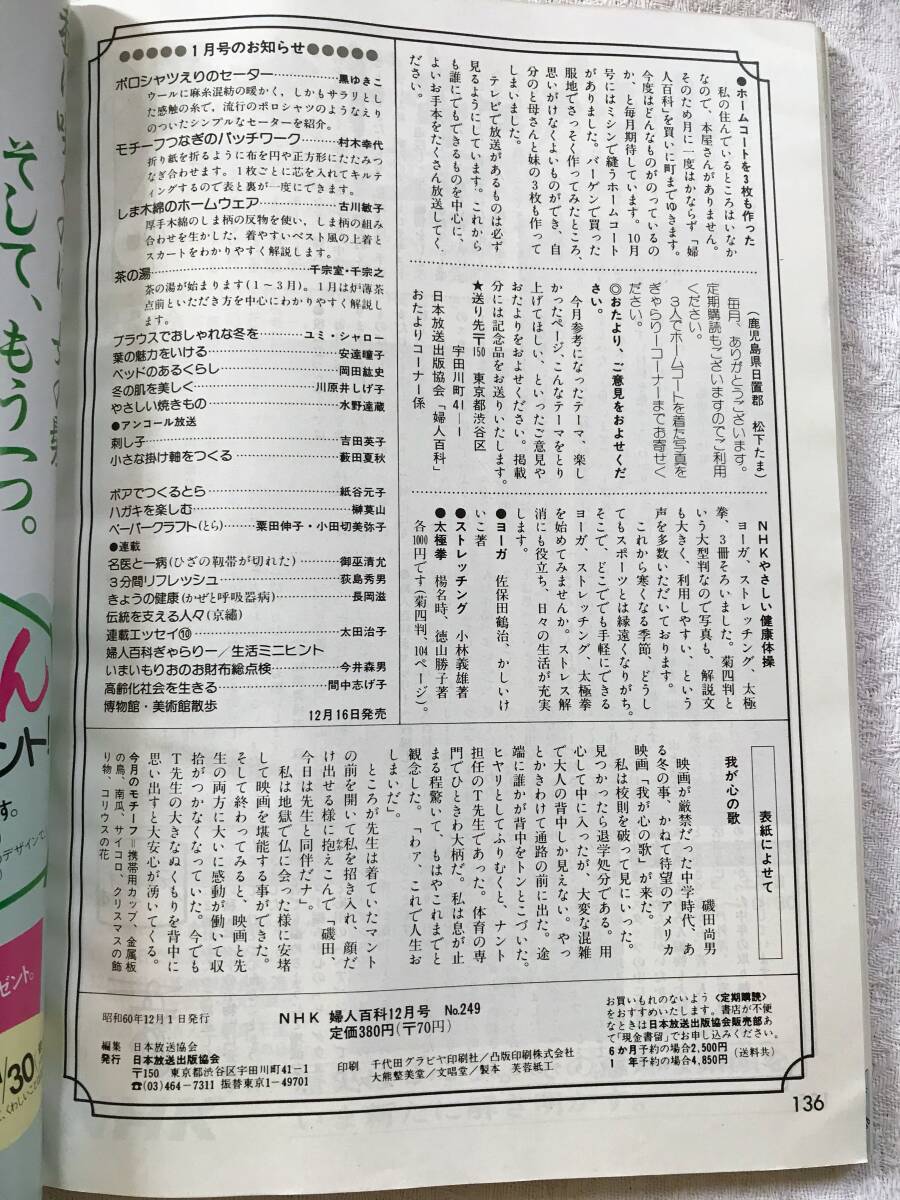 ●ホームコートを3枚も作った
私の住んでいるところはいなか
なので、本屋さんがありません。
そのため月に一度はかならず「婦
人百科」を買いに町までゆきます。
今度はどんなものがのっているの
か、と毎月期待しています。10月
号にはミシンで縫うホームコート
がありました。バーゲンで買った
服地でさっそく作ってみたところ、
思いがけなくよいものができ、自
分のと母さんと妹の3枚も作って
しまいました。
テレビで放送があるものは必ず
見るようにしています。これから
も誰にでもできるものを中心に、
よいお手本をたくさん放送してく
ださい。
(鹿児島県日置郡 松下たま)
毎月、ありがとうございます。
定期購読もございますのでご利用
ください。
3人でホームコートを着た写真を
ぎゃらりーコーナーまでお寄せく
ださい。
◎おたより、ご意見をおよせくだ
さい。
今月参考になったテーマ、楽し
かったページ、こんなテーマをとり
上げてほしい、といったご意見や
おたよりをおよせください。掲載
分には記念品をお送りいたします。
★送り先〒150 東京都渋谷区
宇田川町41-1
日本放送出版協会「婦人百科」
おたよりコーナー係
NHKやさしい健康体操
ヨーガ、ストレッチング、太極
拳、3冊そろいました。菊四判と
いう大型判なので写真も、解説文
も大きく、利用しやすい、という
声を多数いただいております。
これから寒くなる季節、どうし
てもスポーツとは縁遠くなりがち。
そこで、どこででも手軽にできる
ヨーガ、ストレッチング、太極拳
を始めてみませんか。ストレス解
消にも役立ち、日々の生活が充実
します。
●ヨーガ 佐保田鶴治、かしいけ
いこ著
●ストレッチング 小林義雄著
●太極拳 楊名時、徳山勝子著
各1000円です(菊四判、104ページ)。
●●●●●1月号のお知らせ●●●●●
ポロシャツえりのセーター 黒ゆきこ
ウールに麻糸混紡の暖かく、しかもサラリとし
た感触の糸で、流行のポロシャツのようなえり
のついたシンプルなセーターを紹介。
モチーフつなぎのパッチワーク 村木幸代
折り紙を折るように布を円や正方形にたたみつ
なぎ合わせます。1枚ごとに芯を入れてキルテ
ィングするので表と裏が一度にできます。
しま木綿のホームウェア 古川敏子
厚手木綿のしま柄の反物を使い、しま柄の組み
合わせを生かした、着やすいベスト風の上着と
スカートをわかりやすく解説します。
茶の湯 千宗室・千宗之
茶の湯が始まります(1〜3月)。1月は炉薄茶
点前といただき方を中心にわかりやすく解説し
ます。
ブラウスでおしゃれな冬を ユミ・シャロー
葉の魅力をいける 安達瞳子
ベッドのあるくらし 岡田紘史
冬の肌を美しく 川原井しげ子
やさしい焼きもの 水野達蔵
●アンコール放送
刺し子 吉田英子
小さな掛け軸をつくる 藪田夏秋
ボアでつくるとら 紙谷元子
ハガキを楽しむ 榊莫山
ペーパークラフト(とら) 粟田伸子・小田切美弥子
●連載
名医と一病(ひざの靱帯が切れた) 御巫清允
3分間リフレッシュ 荻島秀男
きょうの健康(かぜと呼吸器病) 長岡滋
伝統を支える人々(京繡)
連載エッセイ⑩ 太田治子
婦人百科ぎゃらりー/生活ミニヒント
いまいもりおのお財布総点検 今井森男
高齢化社会を生きる 間中志げ子
博物館・美術館散歩
12月16日発売
表紙によせて
我が心の歌 磯田尚男
映画が厳禁だった中学時代、あ
る冬の事、かねて待望のアメリカ
映画「我が心の歌」が来た。
私は校則を破って見にいった。
見つかったら退学処分である。用
心して中に入ったが、大変な混雑
で大人の背中しか見えない。やっ
とかきわけて通路の前に出た。途
端に誰かが背中をトンとこづいた。
ヒヤリとしてふりむくと、ナント
担任のT先生であった。体育の専
門でひときわ大柄だ。私は息が止
まる程驚いて、もはやこれまでと
観念した。「わァ、これで人生お
しまいだ」。
ところが先生は着ていたマント
の前を開いて私を招き入れ、顔だ
け出せる様に抱えこんで「磯田、
今日は先生と同伴だナ」。
私は地獄で仏に会った様に安堵
して映画を堪能する事ができた。
そして終わってみると、映画と先
生の両方に大いに感動が働いて収
拾がつかなくなっていた。今でも
T先生の大きなぬくもりを背中に
思い出すと大安心が湧いてくる。
今月のモチーフ=携帯用カップ、金属板
の鳥、南瓜、サイコロ、クリスマスの飾
り物、コリウスの花
昭和60年12月1日発行
NHK 婦人百科12月号 No.249
定価380円(〒70円)
編集 日本放送協会
発行 日本放送出版協会
〒150 東京都渋谷区宇田川町41-1
☎(03)464-7311 振替東京1-49701
印刷 千代田グラビヤ印刷社/凸版印刷株式会社
大熊整美堂/文唱堂/製本 芙蓉紙工
お買いもれのないよう〈定期購読〉
をおすすめいたします。書店が不便
なときは日本放送出版協会販売部あ
て「現金書留」でお申し込みください。
6か月予約の場合2,500円
1年予約の場合4,850円(送料共)
136
そして、もう一つ。
ん
ント!
す。
ゼント。
30